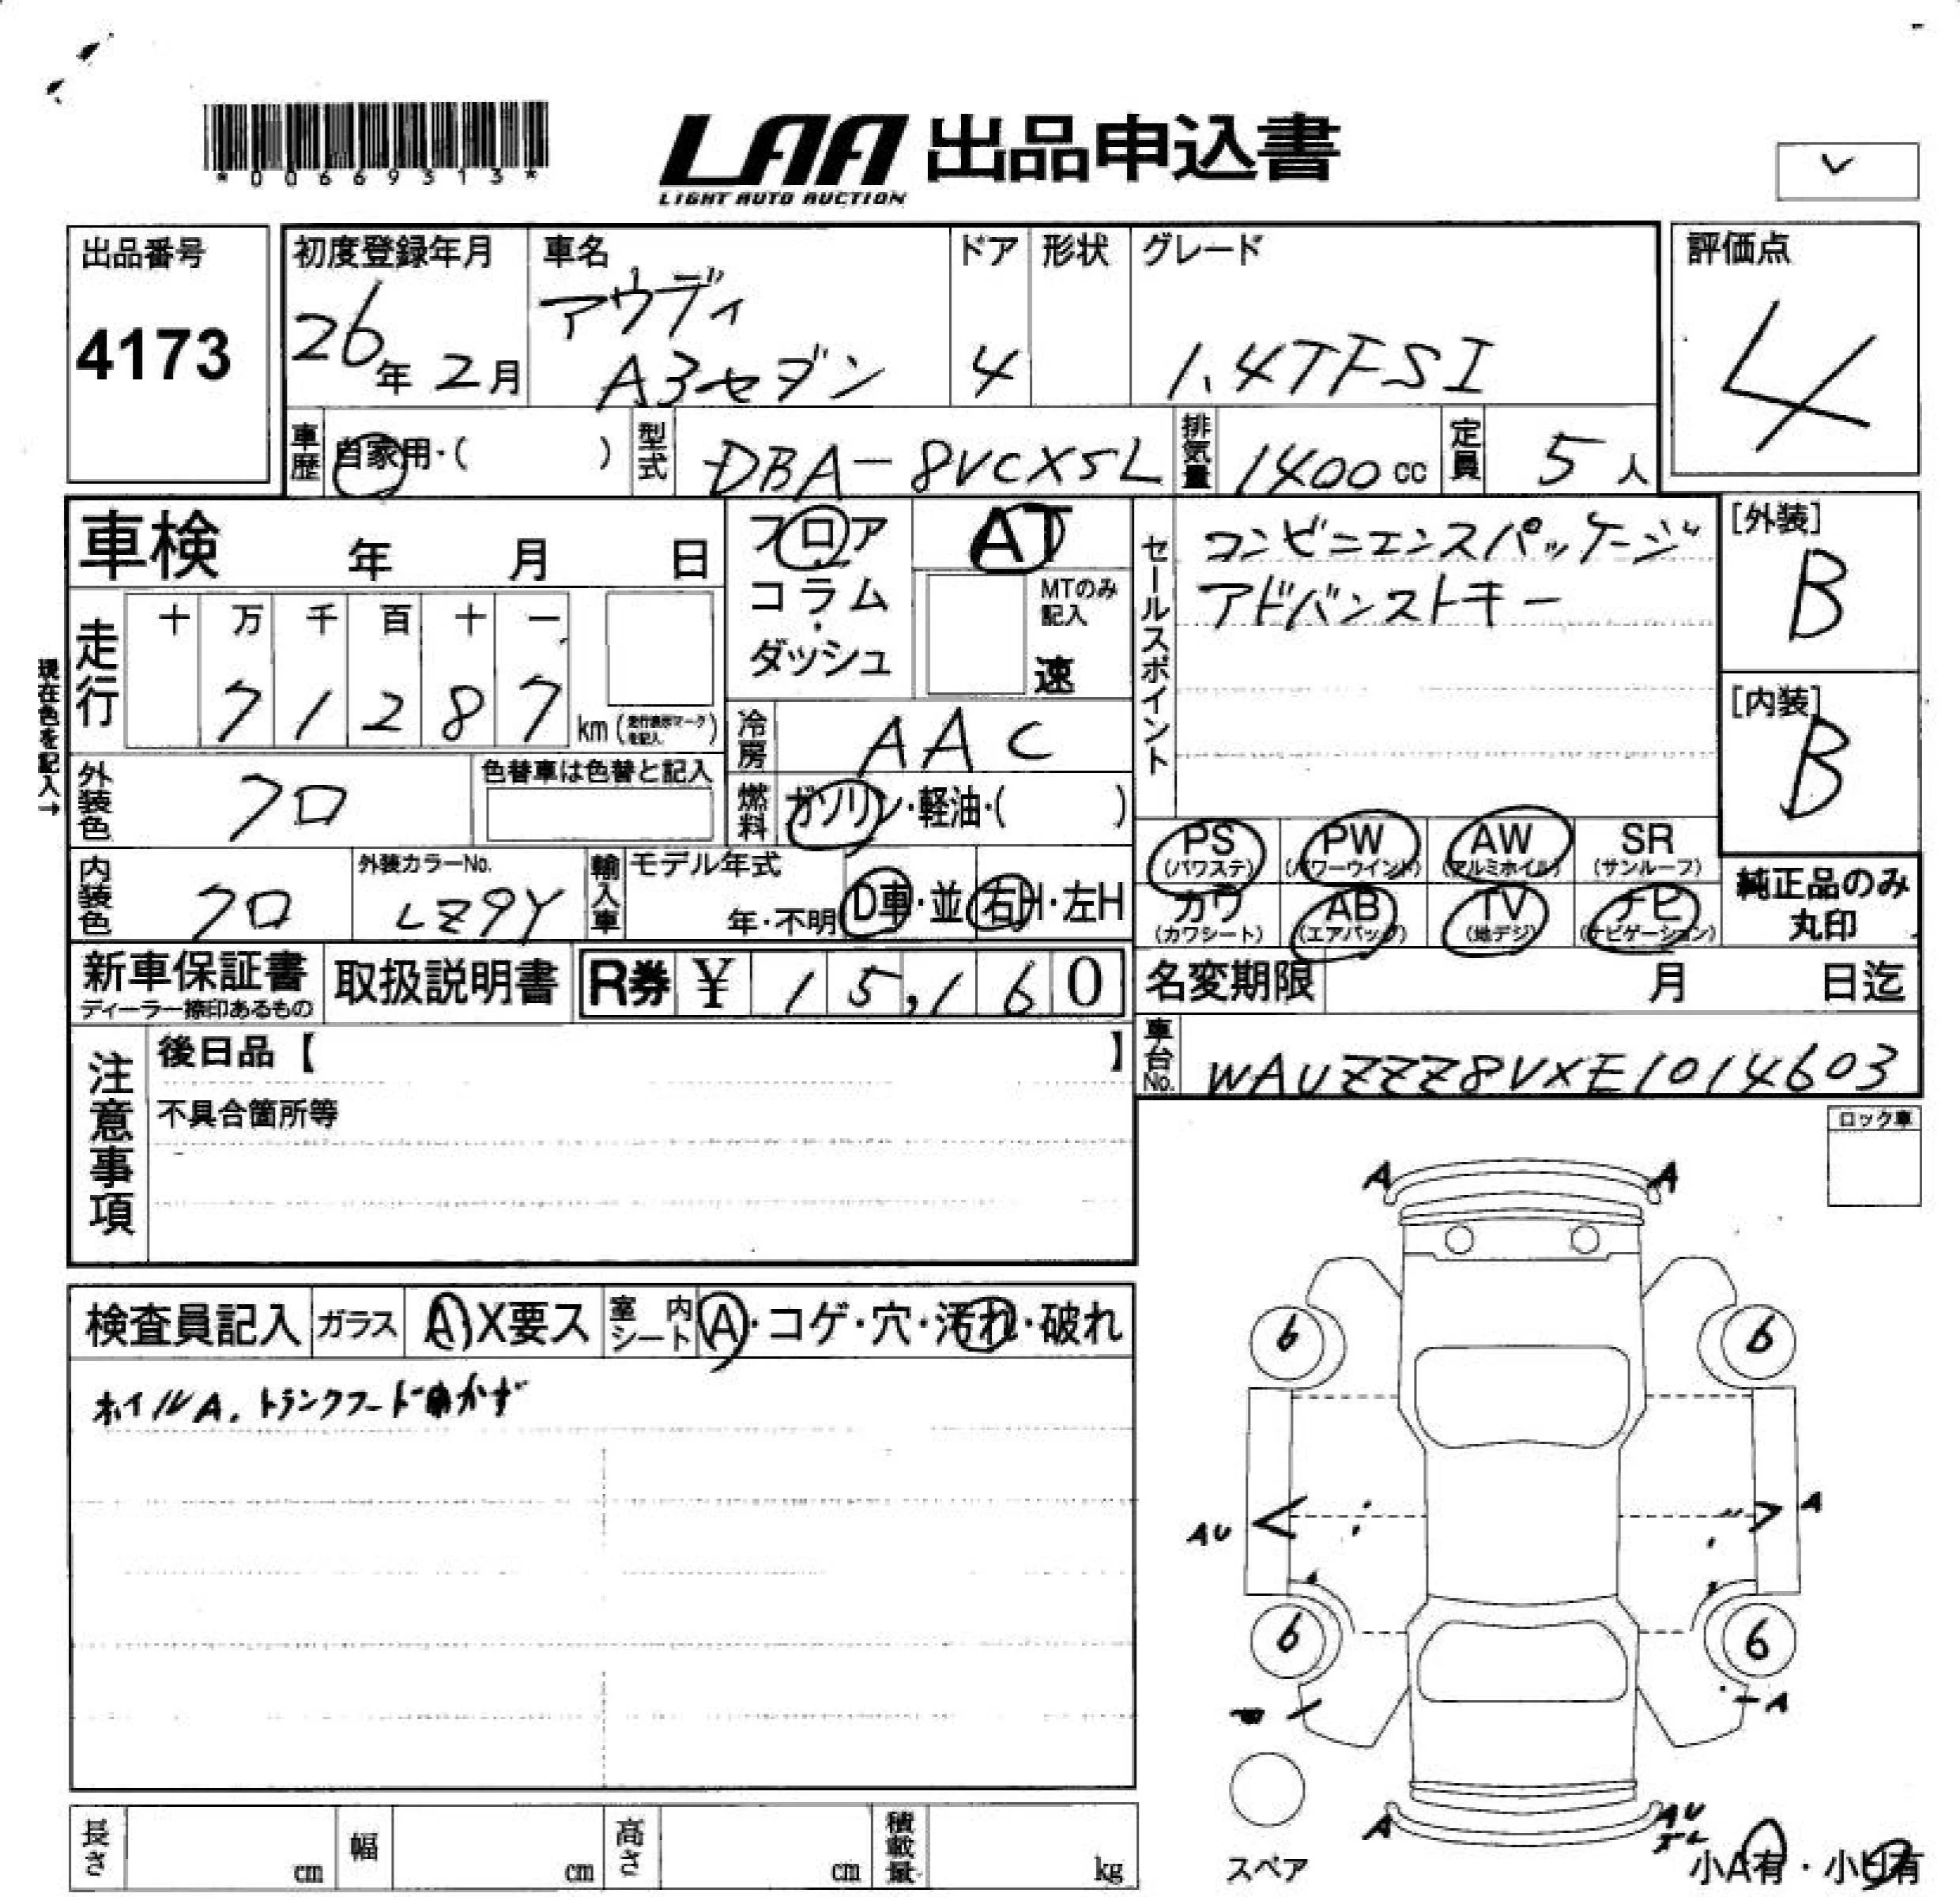 *00669313*
LAA 出品申込書
LIGHT AUTO AUCTION
出品番号
4173
初度登録年月
26年2月
車名
アウディ
A3セダン
ドア
4
形状
グレード
1.4TFSI
評価点
4
車歴 自家用・( )
型式 DBA-8VCXSL
排気量 1400cc
定員 5人
車検 年 月 日
フロア
コラム
ダッシュ
AT
MTのみ記入
速
セールスポイント
コンビニエンスパッケージ
アドバンストキー
[外装]
B
[内装]
B
現在色を記入→
走行
十 万 千 百 十 一
71287 km(走行表示マークを記入)
冷房 AAC
外装色 クロ
色替車は色替と記入
燃料 ガソリン・軽油・( )
内装色 クロ
外装カラーNo.
LZ9Y
輸入車
モデル年式
年・不明
D車・並
右H・左H
PS (パワステ)
PW (パワーウインド)
AW (アルミホイル)
SR (サンルーフ)
カワ (カワシート)
AB (エアバッグ)
TV (地デジ)
ナビ (ナビゲーション)
純正品のみ
丸印
新車保証書
ディーラー捺印あるもの
取扱説明書
R券 ¥ 15,160
名変期限 月 日迄
車台No. WAUZZZ8VXE1014603
注意事項
後日品【 】
不具合箇所等
ロック車
検査員記入
ガラス A X要ス
室内シート A・コゲ・穴・汚れ・破れ
ホイルA. トランクフード開かず
A A
6 6
AU A
6 6
A
A AU
スペア
小A有・小U有
長さ cm
幅 cm
高さ cm
積載量 kg